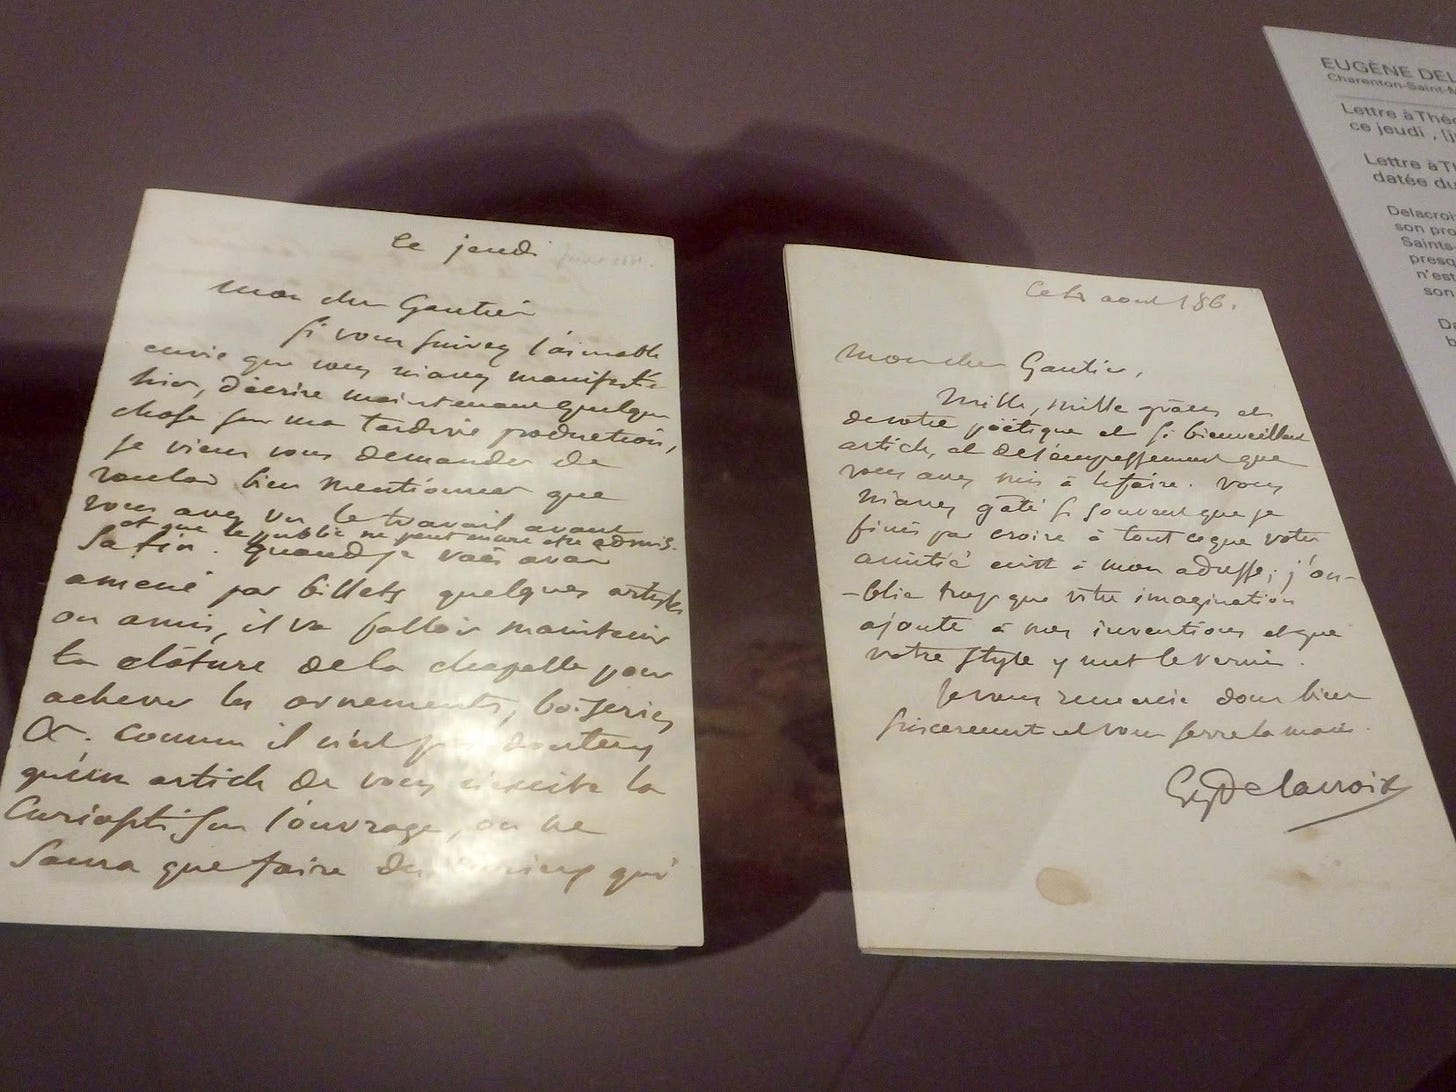 ce jeudi
mon cher Gautier
Si vous suivez l'aimable
envie que vous m'avez manifesté
hier, d'écrire maintenant quelque
chose sur ma tardive production,
je viens vous demander de
vouloir bien mentionner que
vous avez vu le travail avant
et que le public ne peut encore être admis.
sa fin. Quand je vais avoir
amené par billets quelques artistes
ou amis, il va falloir maintenir
la clôture de la chapelle pour
achever les ornements, boiseries
&. Comme il n'est pas douteux
qu'un article de vous n'excite la
curiosité sur l'ouvrage, on ne
saura que faire des qui
Ce août 186
mon cher Gautier,
Mille, mille grâces et
de votre poëtique et si bienveillant
article, et de l'empressement que
vous avez mis à le faire. Vous
m'avez gâté si souvent que je
finis par croire à tout ce que votre
amitié écrit à mon adresse; j'ou-
-blie trop que votre imagination
ajoute à mes inventions et que
votre style y met le vernis.
Je vous remercie donc bien
sincerement et vous serre la main.
Eug Delacroix
EUGÈNE DEL
Charenton-Saint-M
Lettre à Théo
ce jeudi,
Lettre à Th
datée du
Delacroi
son pro
Saints-
presq
n'est
son
Da
b